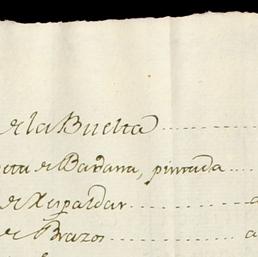 de la Buelta
de Badana, pintada
de Respaldar
de Brazos